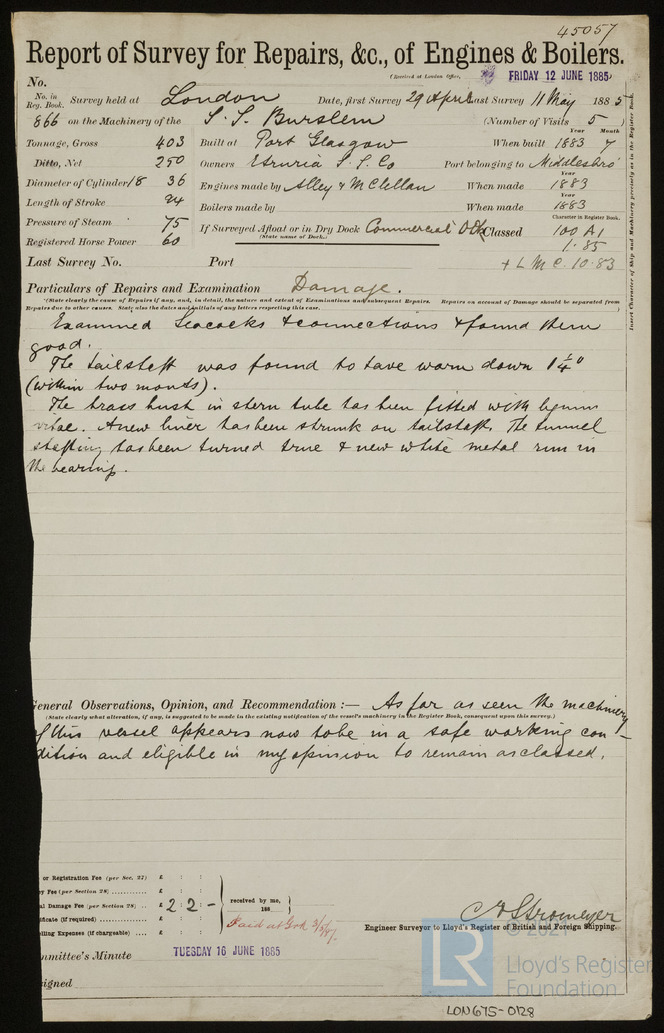 45057
Report of Survey for Repairs, &c., of Engines & Boilers.
(Received at London Office, FRIDAY 12 JUNE 1885)
No.
No. in Reg. Book. Survey held at London Date, first Survey 29 April Last Survey 11 May 1885
866 on the Machinery of the S. S. Burslem (Number of Visits 5)
Year Month
Tonnage, Gross 403 Built at Port Glasgow When built 1883 7
Ditto, Net 250 Owners Etruria S. S. Co Port belonging to Middlesbro'
Year
Diameter of Cylinder 18 36 Engines made by Alley & McClellan When made 1883
Year
Length of Stroke 24 Boilers made by When made 1883
Character in Register Book.
Pressure of Steam 75 If Surveyed Afloat or in Dry Dock Commercial Dk Classed 100 A1
(State name of Dock.)
Registered Horse Power 60 1.85
Last Survey No. Port + L M C 10.83
Particulars of Repairs and Examination Damage.
(State clearly the cause of Repairs if any, and, in detail, the nature and extent of Examinations and subsequent Repairs. Repairs on account of Damage should be separated from
Repairs due to other causes. State also the dates and initials of any letters respecting this case.)
Examined Seacocks & connections & found them
good.
The tailshaft was found to have worn down 1 1/4"
(within two months).
The brass bush in stern tube has been fitted with lignum
vitae. A new liner has been shrunk on tailshaft. The tunnel
shafting has been turned true & new white metal run in
the bearings.
Insert Character of Ship and Machinery precisely as in the Register Book.
General Observations, Opinion, and Recommendation :— As far as seen the machinery
(State clearly what alteration, if any, is suggested to be made in the existing notification of the vessel's machinery in the Register Book, consequent upon this survey.)
of this vessel appears now to be in a safe working con-
dition and eligible in my opinion to remain as classed.
or Registration Fee (per Sec. 27) £ : :
y Fee (per Section 28) ............ £ : :
al Damage Fee (per Section 28) ... £ 2 : 2 : - received by me,
ificate (if required) ............ £ : : 188
elling Expenses (if chargeable) .... £ : : Paid at
C E Stromeyer
Engineer Surveyor to Lloyd's Register of British and Foreign Shipping.
mmittee's Minute TUESDAY 16 JUNE 1885
signed
© 2021
LR
Lloyd's Register
Foundation
LON675-0128